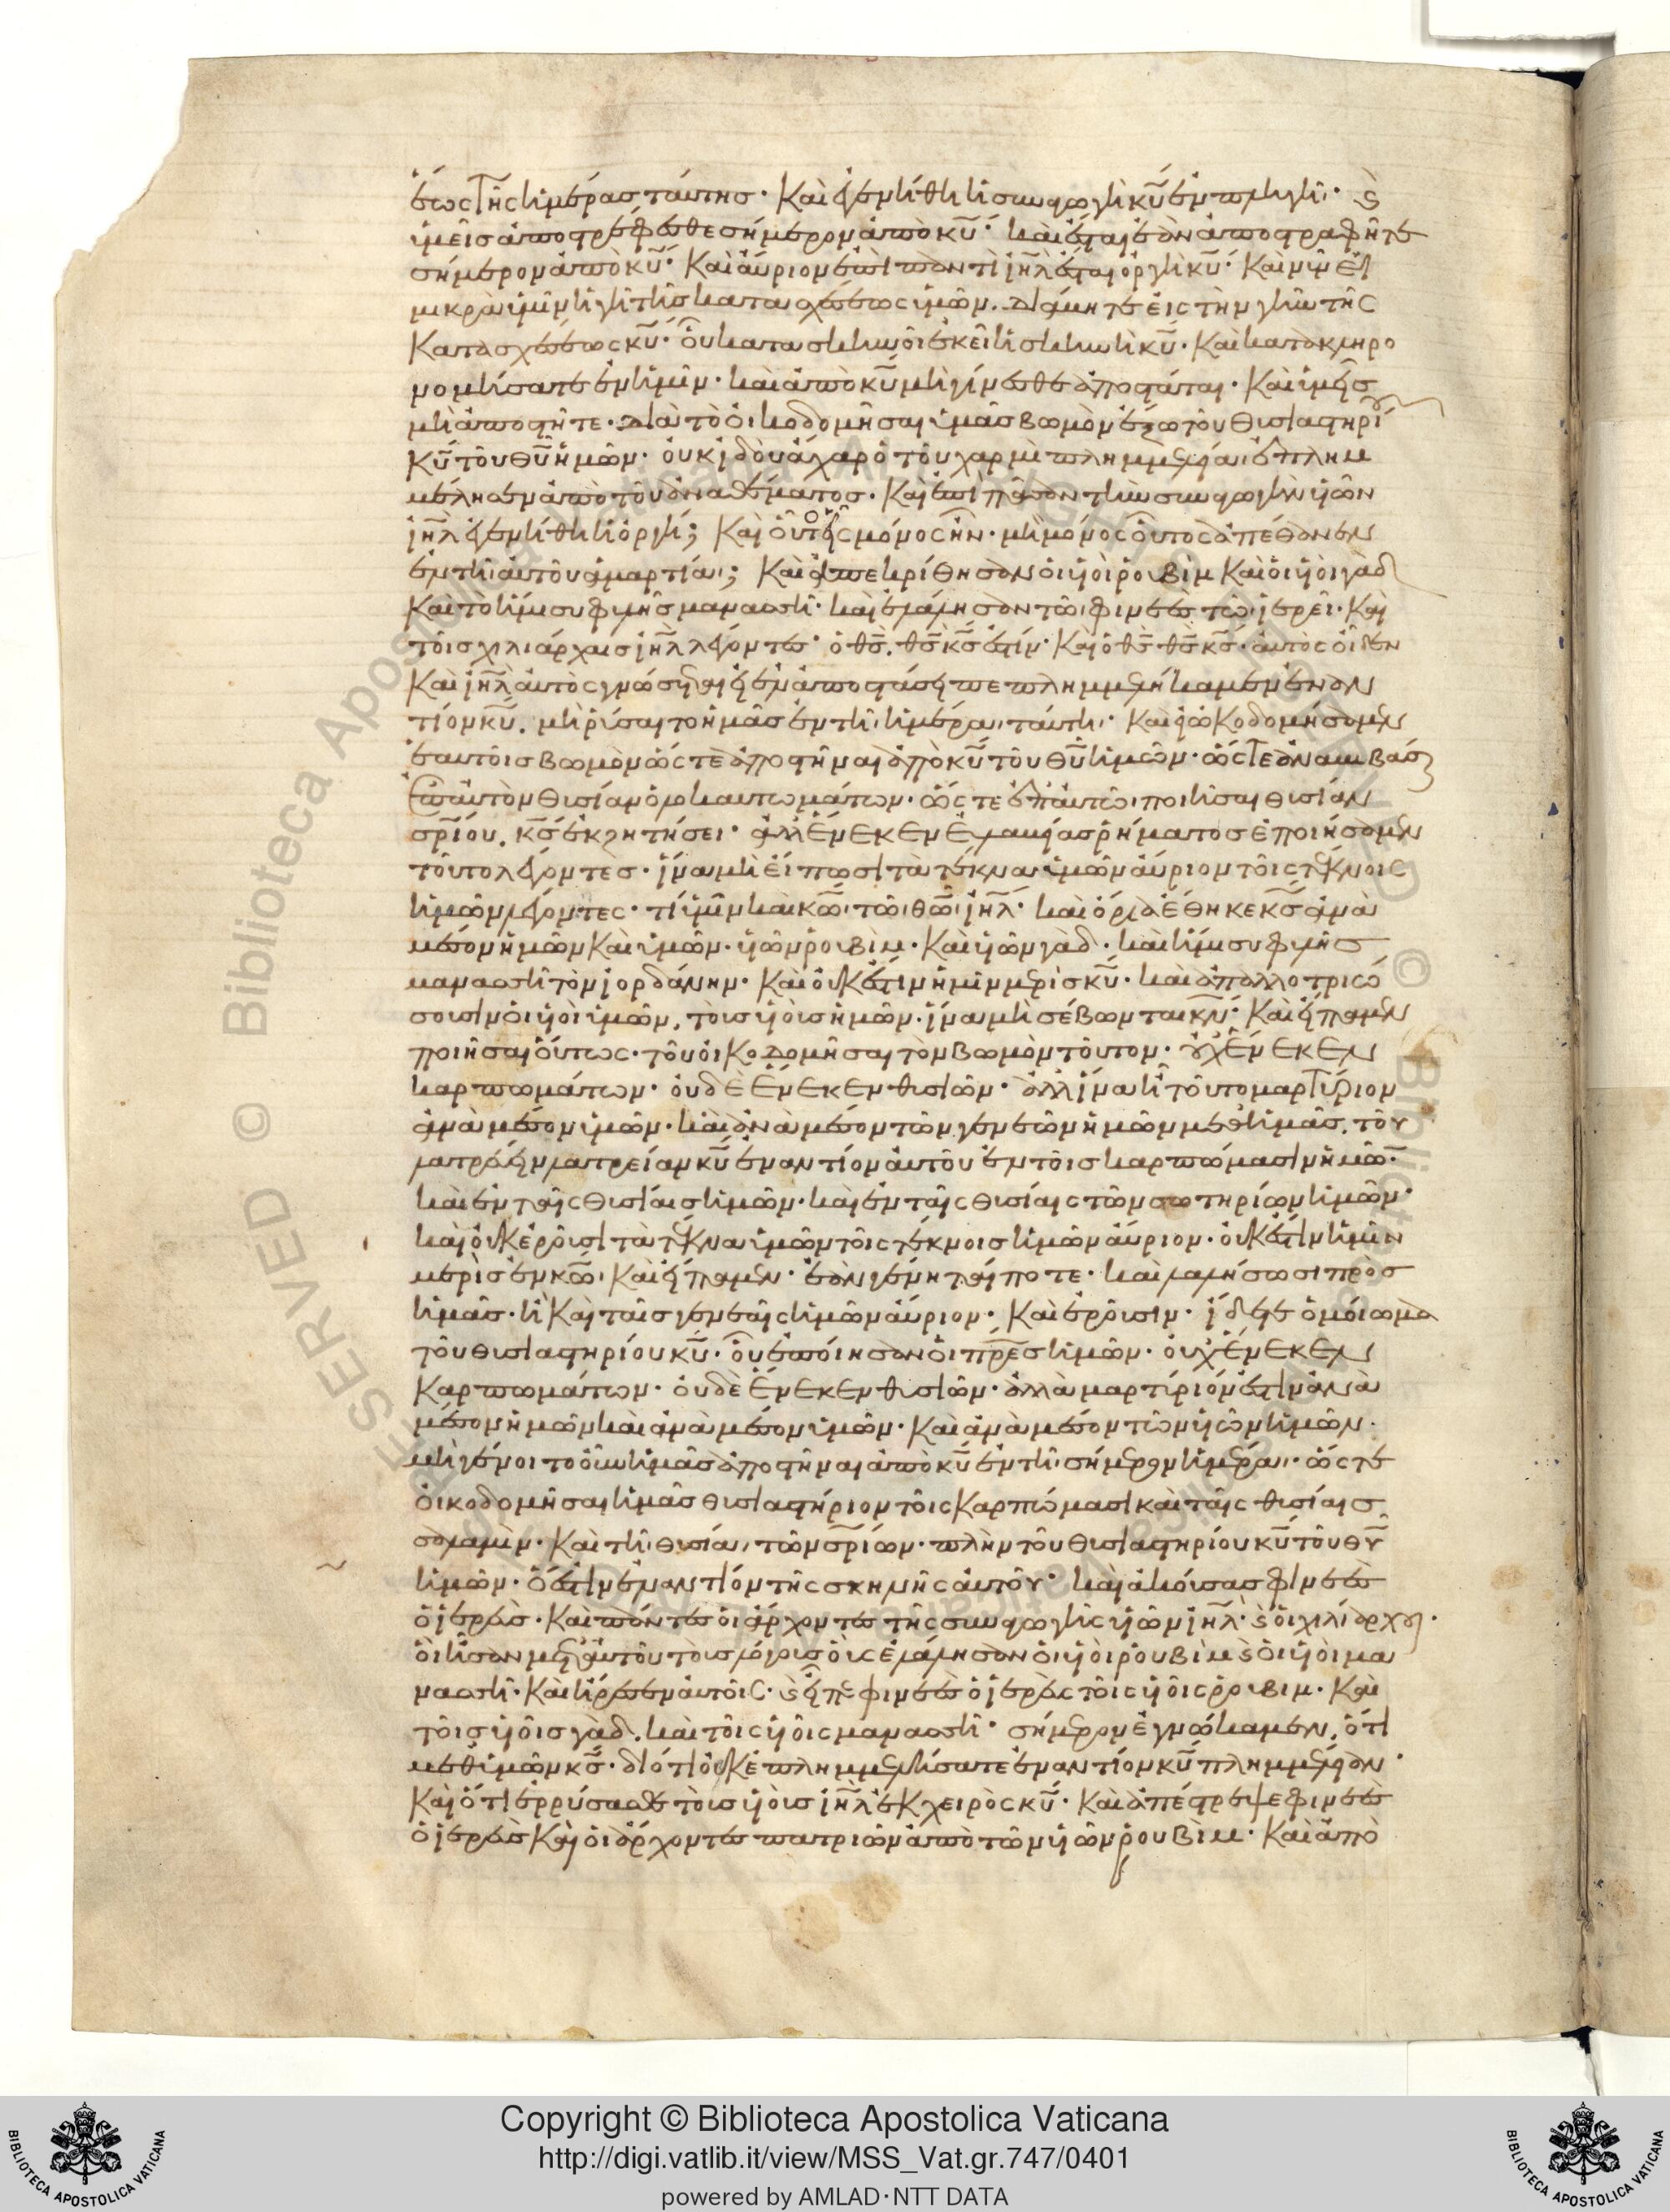 ἕως τῆς ἡμέρας ταύτης· Καὶ ἐγενήθη ἡ συναγωγὴ κ̅υ̅ ἐν πληγῇ· ϛ̀
ὑμεῖς ἀποστρέφεσθε σήμερον ἀπὸ κ̅υ̅· καὶ ἔσται ἐὰν ἀποστραφῆτε
σήμερον ἀπὸ κ̅υ̅· Καὶ ἀύριον ἐπὶ πάντα ἰ̅η̅λ̅ ἔσται ὀργὴ κ̅υ̅· Καὶ νῦν εἰ
μικρὰ ὑμῖν ἡ γῆ τῆς κατασχέσεως ὑμῶν. διάβητε εἰς τὴν γῆν τῆς
Κατασχέσεως κ̅υ̅· οὗ κατασκηνοῖ ἐκεῖ ἡ σκηνὴ κ̅υ̅· Καὶ κατακληρο
νομήσατε ἐν ἡμῖν· καὶ ἀπὸ κ̅υ̅ μὴ γίνεσθε ἀποστάται· Καὶ ὑμεῖς
μὴ ἀποστῆτε· διὰ τὸ οἰκοδομῆσαι ὑμᾶς βωμὸν ἔξω τοῦ θυσιαστηρί
κ̅υ̅ τοῦ θ̅υ̅ ἡμῶν· οὐκ ἰδοὺ ἄχαρ ὁ τοῦ χαρμὶ πλημμελεία ἐπλημ
μέλησεν ἀπὸ τοῦ ἀναθέματος· Καὶ ἐπὶ πᾶσαν τὴν συναγωγὴν υἱῶν
ἰ̅η̅λ̅ ἐγενήθη ἡ ὀργή; Καὶ οὗτος μόνος ἦν· μὴ μόνος οὗτος ἀπέθανεν
ἐν τῆ ἀυτοῦ ἁμαρτία; Καὶ ἀπεκρίθησαν οἱ υἱοὶ ῥουβὶμ Καὶ οἱ υἱοὶ γὰδ
Καὶ τὸ ἥμισυ φυλῆς μανασσῆ· καὶ ἐλάλησαν τῶ φινεὲς τῶ ἱερεῖ· Καὶ
τοῖς χιλιάρχαις ἰ̅η̅λ̅ λέγοντες· ὁ θ̅ς̅. θ̅ς̅ κ̅ς̅ ἐστίν· Καὶ ὁ θ̅ς̅ θ̅ς̅ κ̅ς̅· ἀυτὸς οἶδεν
Καὶ ἰ̅η̅λ̅ ἀυτὸς γνώσεται εἰ ἐν ἀποστάσει πεπλημμελήκαμεν ἔναν
τίον κ̅υ̅. μὴ ῥύσαιτο ἡμᾶς ἐν τῆ ἡμέρα ταύτη· Καὶ εἰ ὠκοδομήσαμεν
ἑαυτοῖς βωμὸν ὥς τε ἀποστῆναι ἀπὸ κ̅υ̅ τοῦ θ̅υ̅ ἡμῶν· ὥς τε ἀναβιβάσ
ἐπ ἀυτὸν θυσίαν ὁλοκαυτωμάτων· ὥς τε ἐπ ἀυτῶ ποιῆσαι θυσίαν
σ̅ρ̅ίου. κ̅ς̅ ἐκζητήσει· ἀλλ ἕνεκεν ἐυλαβείας ῥήματος ἐποιήσαμεν
τοῦτο λέγοντες· ἵνα μὴ εἴπωσι τὰ τέκνα ὑμῶν ἀύριον τοῖς τέκνοις
ἡμῶν λέγοντες· τί ὑμῖν καὶ κ̅ω̅ τῶ θ̅ω̅ ἰ̅η̅λ̅· καὶ ὅρια ἔθηκε κ̅ς̅ ἀνὰ
μέσον ἡμῶν Καὶ ὑμῶν· υἱῶν ῥουβὶμ· Καὶ υἱῶν γὰδ· καὶ ἥμισυ φυλῆς
μανασσῆ τὸν ἰορδάνην· Καὶ οὐκ ἔστιν ἡμῖν μερὶς κ̅υ̅· καὶ ἀπαλλοτριώ
σουσιν οἱ υἱοὶ ὑμῶν, τοῖς υἱοῖς ἡμῶν· ἵνα μὴ σέβωνται κ̅ν̅· Καὶ εἴπαμεν
ποιῆσαι οὕτως· τοῦ οἰκοδομῆσαι τὸν βωμὸν τοῦτον· οὐχ ἕνεκεν
καρπωμάτων· οὐδὲ ἕνεκεν θυσιῶν· ἀλλ ἵνα ἦ τοῦτο μαρτύριον
ἀνὰ μέσον ὑμῶν· καὶ ἀνὰ μέσον τῶν γενεῶν ἡμῶν μεθ ἡμᾶς. τοῦ
λατρεύειν λατρείαν κ̅υ̅ ἐναντίον ἀυτοῦ ἐν τοῖς καρπώμασιν ἡμῶ̅
καὶ ἐν ταῖς θυσίαις ἡμῶν· καὶ ἐν ταῖς θυσίαις τῶν σωτηρίων ἡμῶν·
καὶ οὐκ ἐροῦσι τὰ τέκνα ὑμῶν τοῖς τέκνοις ἡμῶν ἀύριον· οὐκ ἔστιν ὑμῖν
μερὶς ἐν κ̅ω̅· Καὶ εἴπαμεν· ἐὰν γένηται ποτε· καὶ λαλήσωσι πρὸς
ἡμᾶς· ἢ Καὶ ταῖς γενεαῖς ἡμῶν ἀύριον· Καὶ ἐροῦσιν· ἴδετε ὁμοίωμα
τοῦ θυσιαστηρίου κ̅υ̅· οὗ ἐποίησαν οἱ π̅ρ̅ες ἡμῶν· οὐχ ἕνεκεν
Καρπωμάτων· οὐδὲ ἕνεκεν θυσιῶν· ἀλλὰ μαρτύριόν ἐστιν ἀνὰ
μέσον ἡμῶν καὶ ἀνὰ μέσον ὑμῶν· Καὶ ἀνὰ μέσον τῶν υἱῶν ἡμῶν·
μὴ γένοιτο οὖν ἡμᾶς ἀποστῆναι ἀπὸ κ̅υ̅ ἐν τῆ σήμερον ἡμέρα· ὥς τε
οἰκοδομῆσαι ἡμᾶς θυσιαστήριον τοῖς Καρπώμασι καὶ ταῖς θυσίαις
σαλαμὶν· Καὶ τῆ θυσία τῶν σ̅ρ̅ίων· πλὴν τοῦ θυσιαστηρίου κ̅υ̅ τοῦ θ̅υ̅
ἡμῶν· ὅ ἐστιν ἐναντίον τῆς σκηνῆς ἀυτοῦ· καὶ ἀκούσας φινεὲς
ὁ ἱερεὺς· Καὶ πάντες οἱ ἄρχοντες τῆς συναγωγῆς υἱῶν ἰ̅η̅λ̅· ϛ̀ οἱ χιλίαρχοι·
οἳ ἦσαν μετ ἀυτοῦ τοὺς λόγους οἷς ἐλάλησαν οἱ υἱοὶ ῥουβὶμ ϛ̀ οἱ υἱοὶ μα
νασσῆ· Καὶ ἤρεσεν ἀυτοῖς· ϛ̀ εἶπε φινεὲς ὁ ἱερεὺς τοῖς υἱοῖς ῥουβιμ· Καὶ
τοῖς υἱοῖς γὰδ. καὶ τοῖς υἱοῖς μανασσῆ· σήμερον ἐγνώκαμεν, ὅτι
μεθ ὑμῶν κ̅ς̅· διότι οὐκ ἐπλημμελήσατε ἐναντίον κ̅υ̅ πλημμέλειαν·
Καὶ ὅτι ἐρρύσασθε τοὺς υἱοὺς ἰ̅η̅λ̅ ἐκ χειρὸς κ̅υ̅· Καὶ ἀπέστρεψε φινεὲς
ὁ ἱερεὺς Καὶ οἱ ἄρχοντες πατριῶν ἀπὸ τῶν υἱῶν ῥουβὶμ· Καὶ ἀπὸ
Copyright © Biblioteca Apostolica Vaticana
http://digi.vatlib.it/view/MSS_Vat.gr.747/0401
powered by AMLAD·NTT DATA
BIBLIOTECA APOSTOLICA VATICANA
BIBLIOTECA APOSTOLICA VATICANA